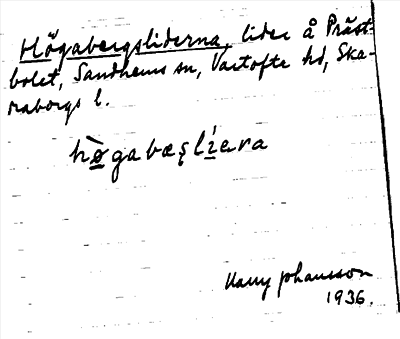 Högabergsliderna, lider å Präst-
bolet, Sandhems sn, Vartofte hd, Ska-
raborgs l.
hø̀gabæʂlíəra
Harry Johansson
1936.